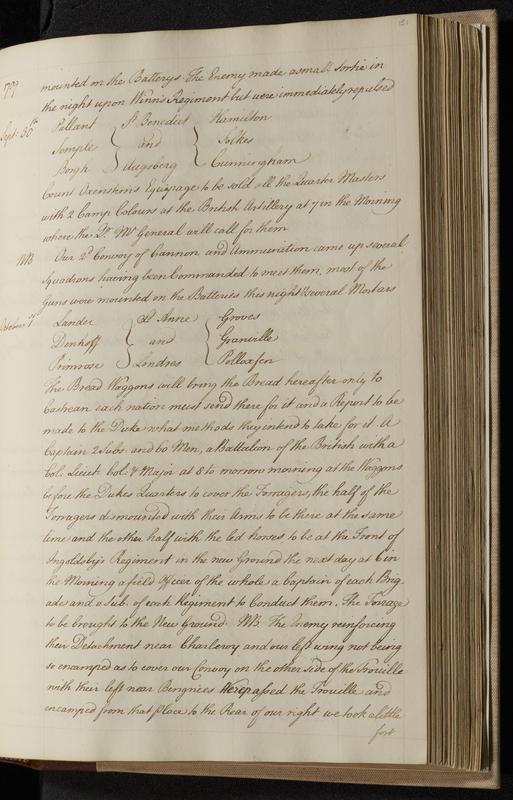 121
1709 mounted on the Batterys. The Enemy made a small Sortie in
the night upon Winn's Regiment but were immediately repulsed
Sept: 30th Pallant St. Benedict Hamilton
Temple and Folkes
Bergh Augsberg Cunningham
Count Oxenstirn's Equipage to be sold all the Quarter Masters
with 2 Camp Colours at the British Artillery at 7 in the Morning
where the Qr. Mr General will call for them
NB Our 2d Convoy of Cannon and Ammunition came up several
Squadrons having been Commanded to meet them, most of the
Guns were mounted on the Batteries this night & several Mortars
October 1st Lander St Anne Groves
Denhoff and Granville
Primrose Londres Pollexfen
The Bread Waggons will bring the Bread hereafter only to
Castreau each nation must send there for it and a Report to be
made to the Duke what methods they intend to take for it. A
Captain 2 Subs. and 60 Men, a Battalion of the British with a
Col. Lieut. Col. & Major at 8 to morrow morning at the Waggons
before the Dukes Quarters to cover the Forragers, the half of the
Forragers dismounted with their Arms to be there at the same
time and the other half with the led horses to be at the Front of
Ingoldsby's Regiment in the new Ground the next day at 6 in
the Morning a field Officer of the whole a Captain of each Brig-
ade and a Sub. of each Regiment to Conduct them. The Forrage
to be brought to the New Ground. NB. The Enemy reinforcing
their Detachment near Charleroy and our left wing not being
so encamped as to cover our Convoy on the other side of the Trouille
with their left near Bengnies repassed the Trouille and
encamped from that place to the Rear of our right we took a little
fort